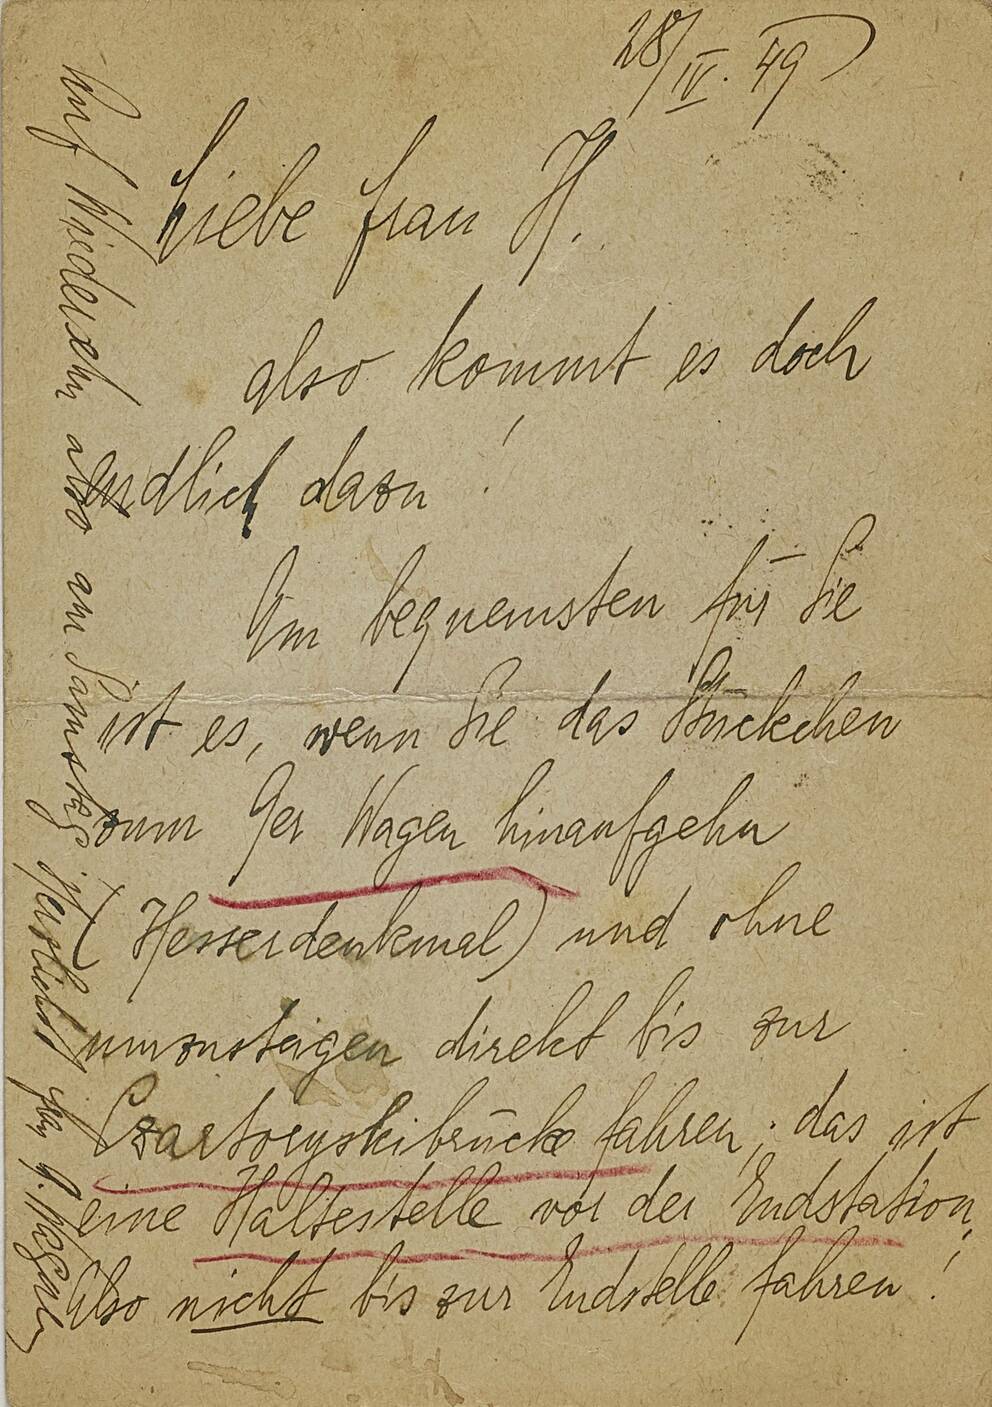 28/IV. 49
Liebe Frau H.
also kommt es doch
endlich dazu!
Am bequemsten für Sie
ist es, wenn Sie das Stückchen
zum 9er Wagen hinaufgehn
(Hesserdenkmal) und ohne
umzusteigen direkt bis zur
Czartoryskibrücke fahren; das ist
eine Haltestelle vor der Endstation,
Also nicht bis zur Endstelle fahren!
Auf Wiedersehn also am Samstag
Herzlichst